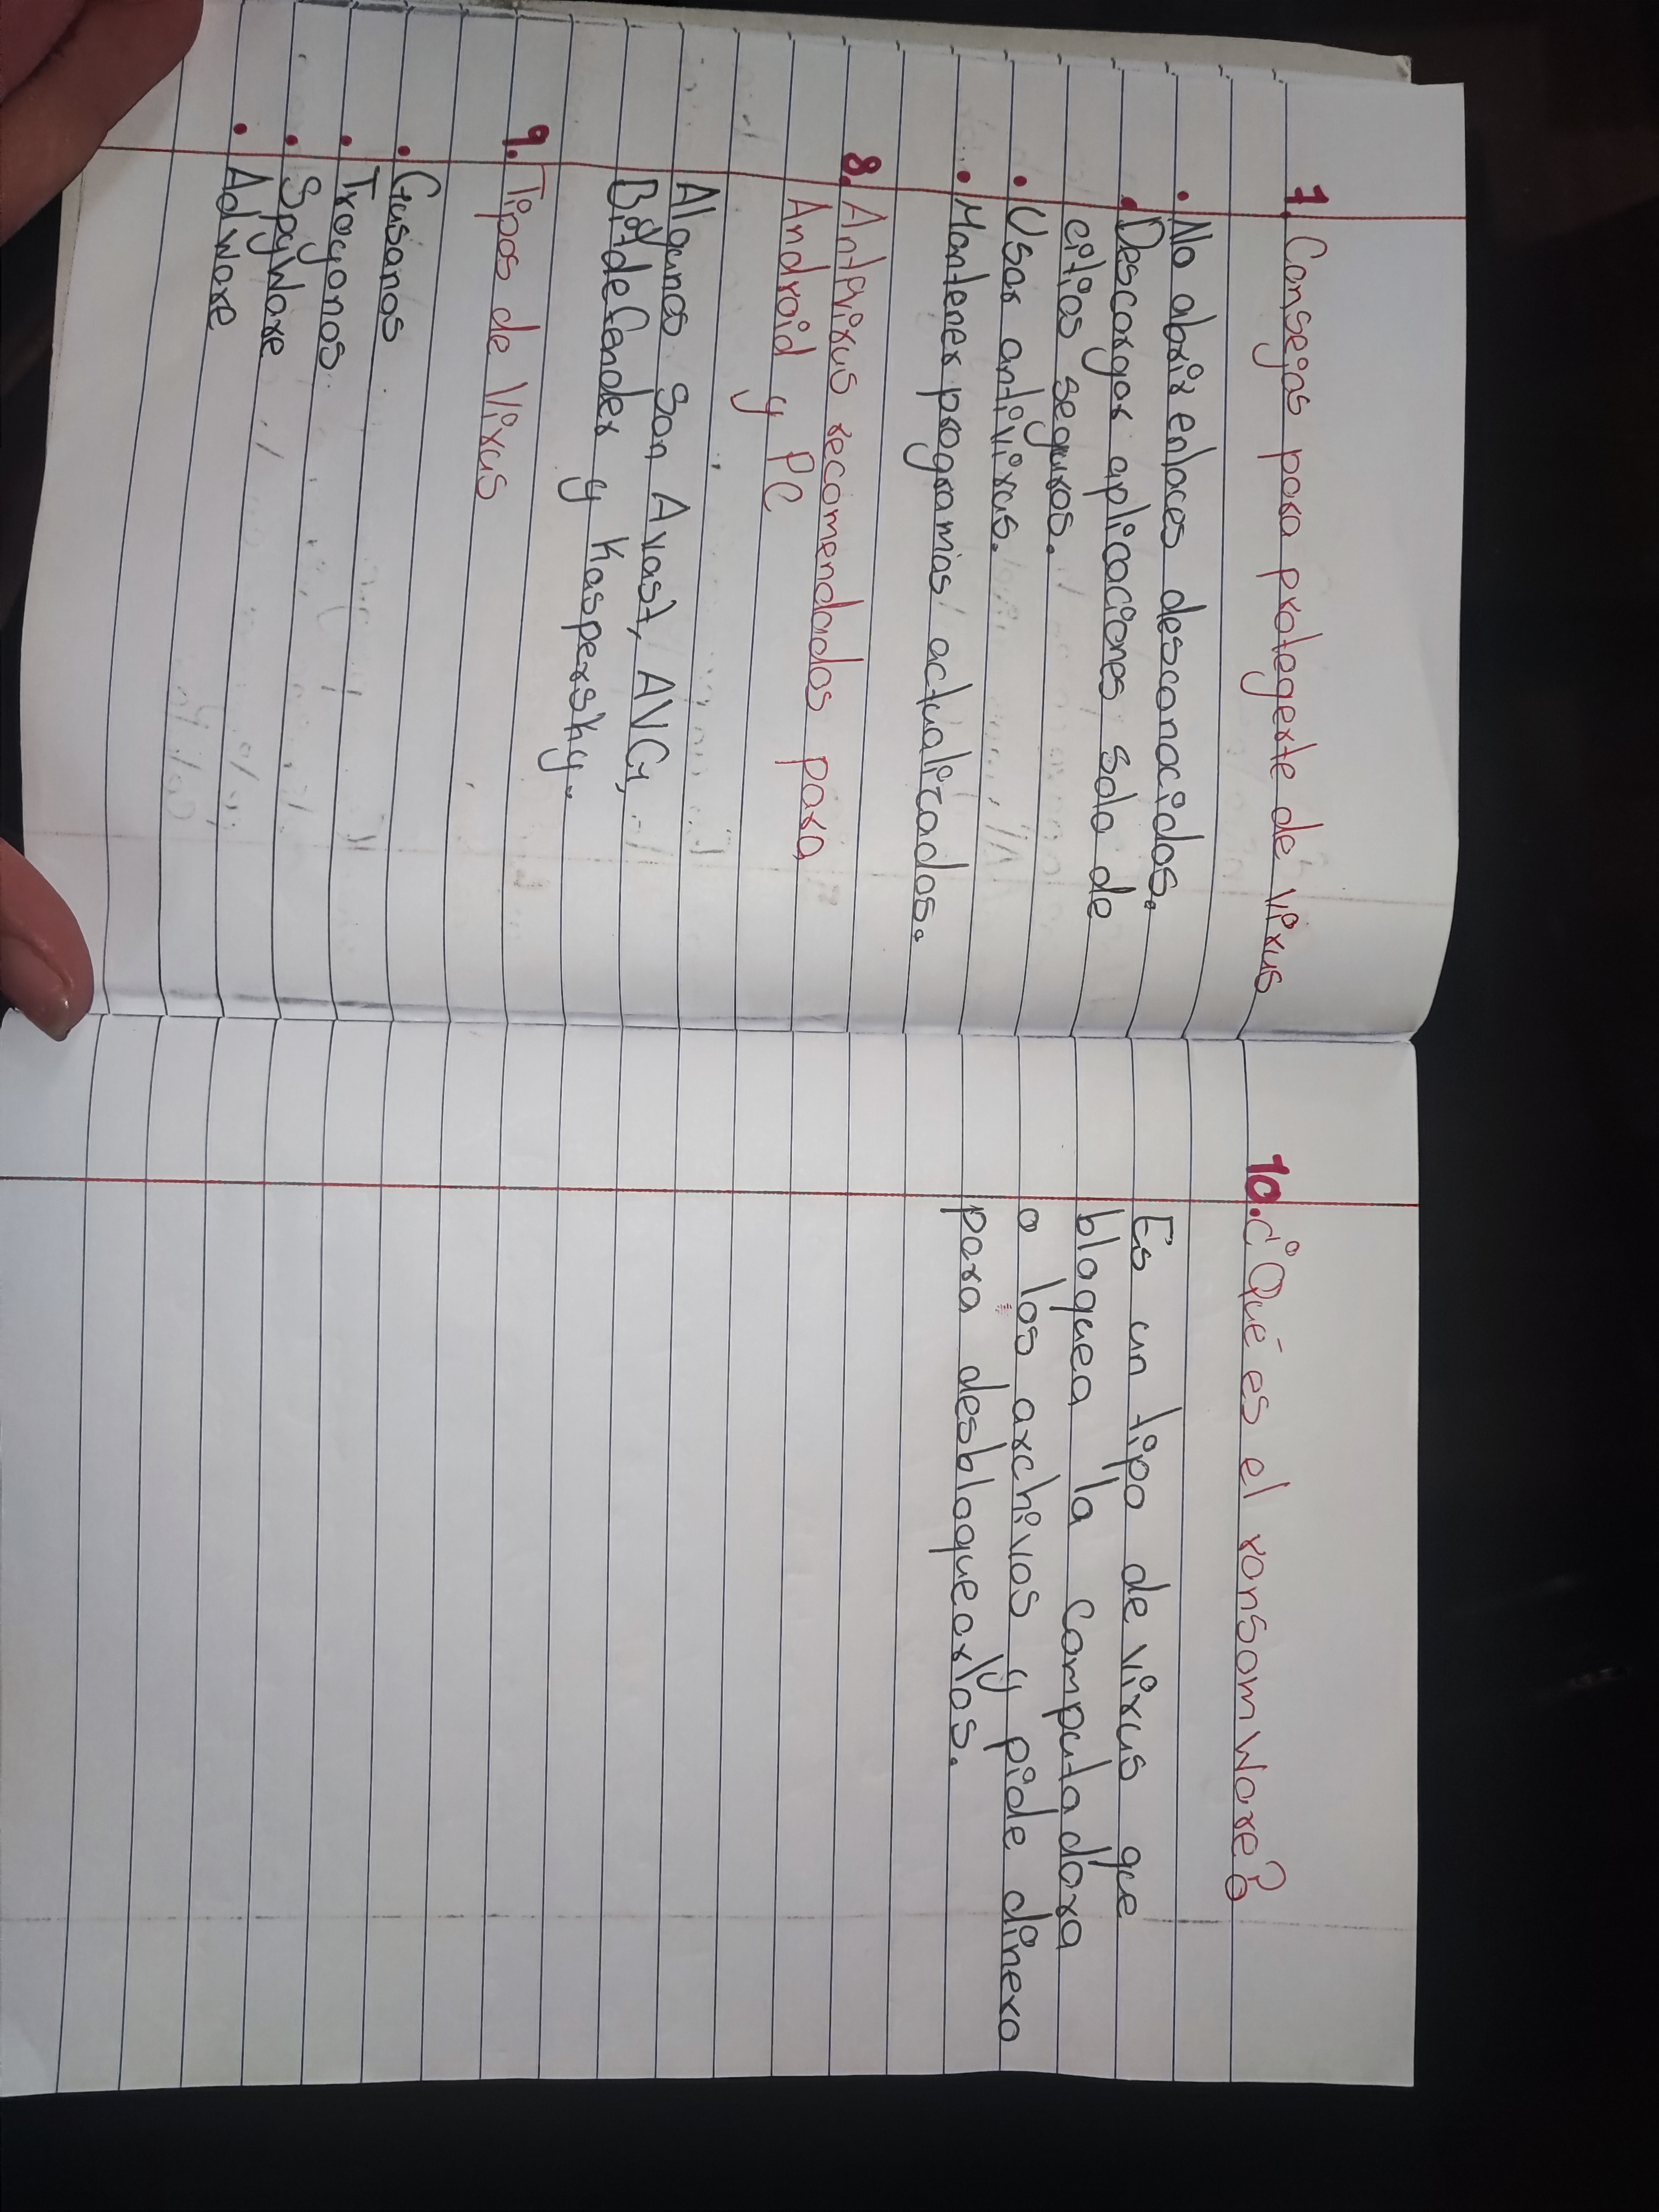 7. Consejos para protegerte de virus
• No abrir enlaces desconocidos.
• Descargar aplicaciones solo de
citios seguros.
• Usar antivirus.
• Mantener programas actualizados.
8. Antivirus recomendados para
Android y PC
Algunos son Avast, AVG,
Bitdefender y Kaspersky.
9. Tipos de virus
• Gusanos
• Troyanos
• SpyWare
• AdWare
10. ¿Qué es el ransomWare?
Es un tipo de virus que
bloquea la computadora
o los archivos y pide dinero
para desbloquearlos.